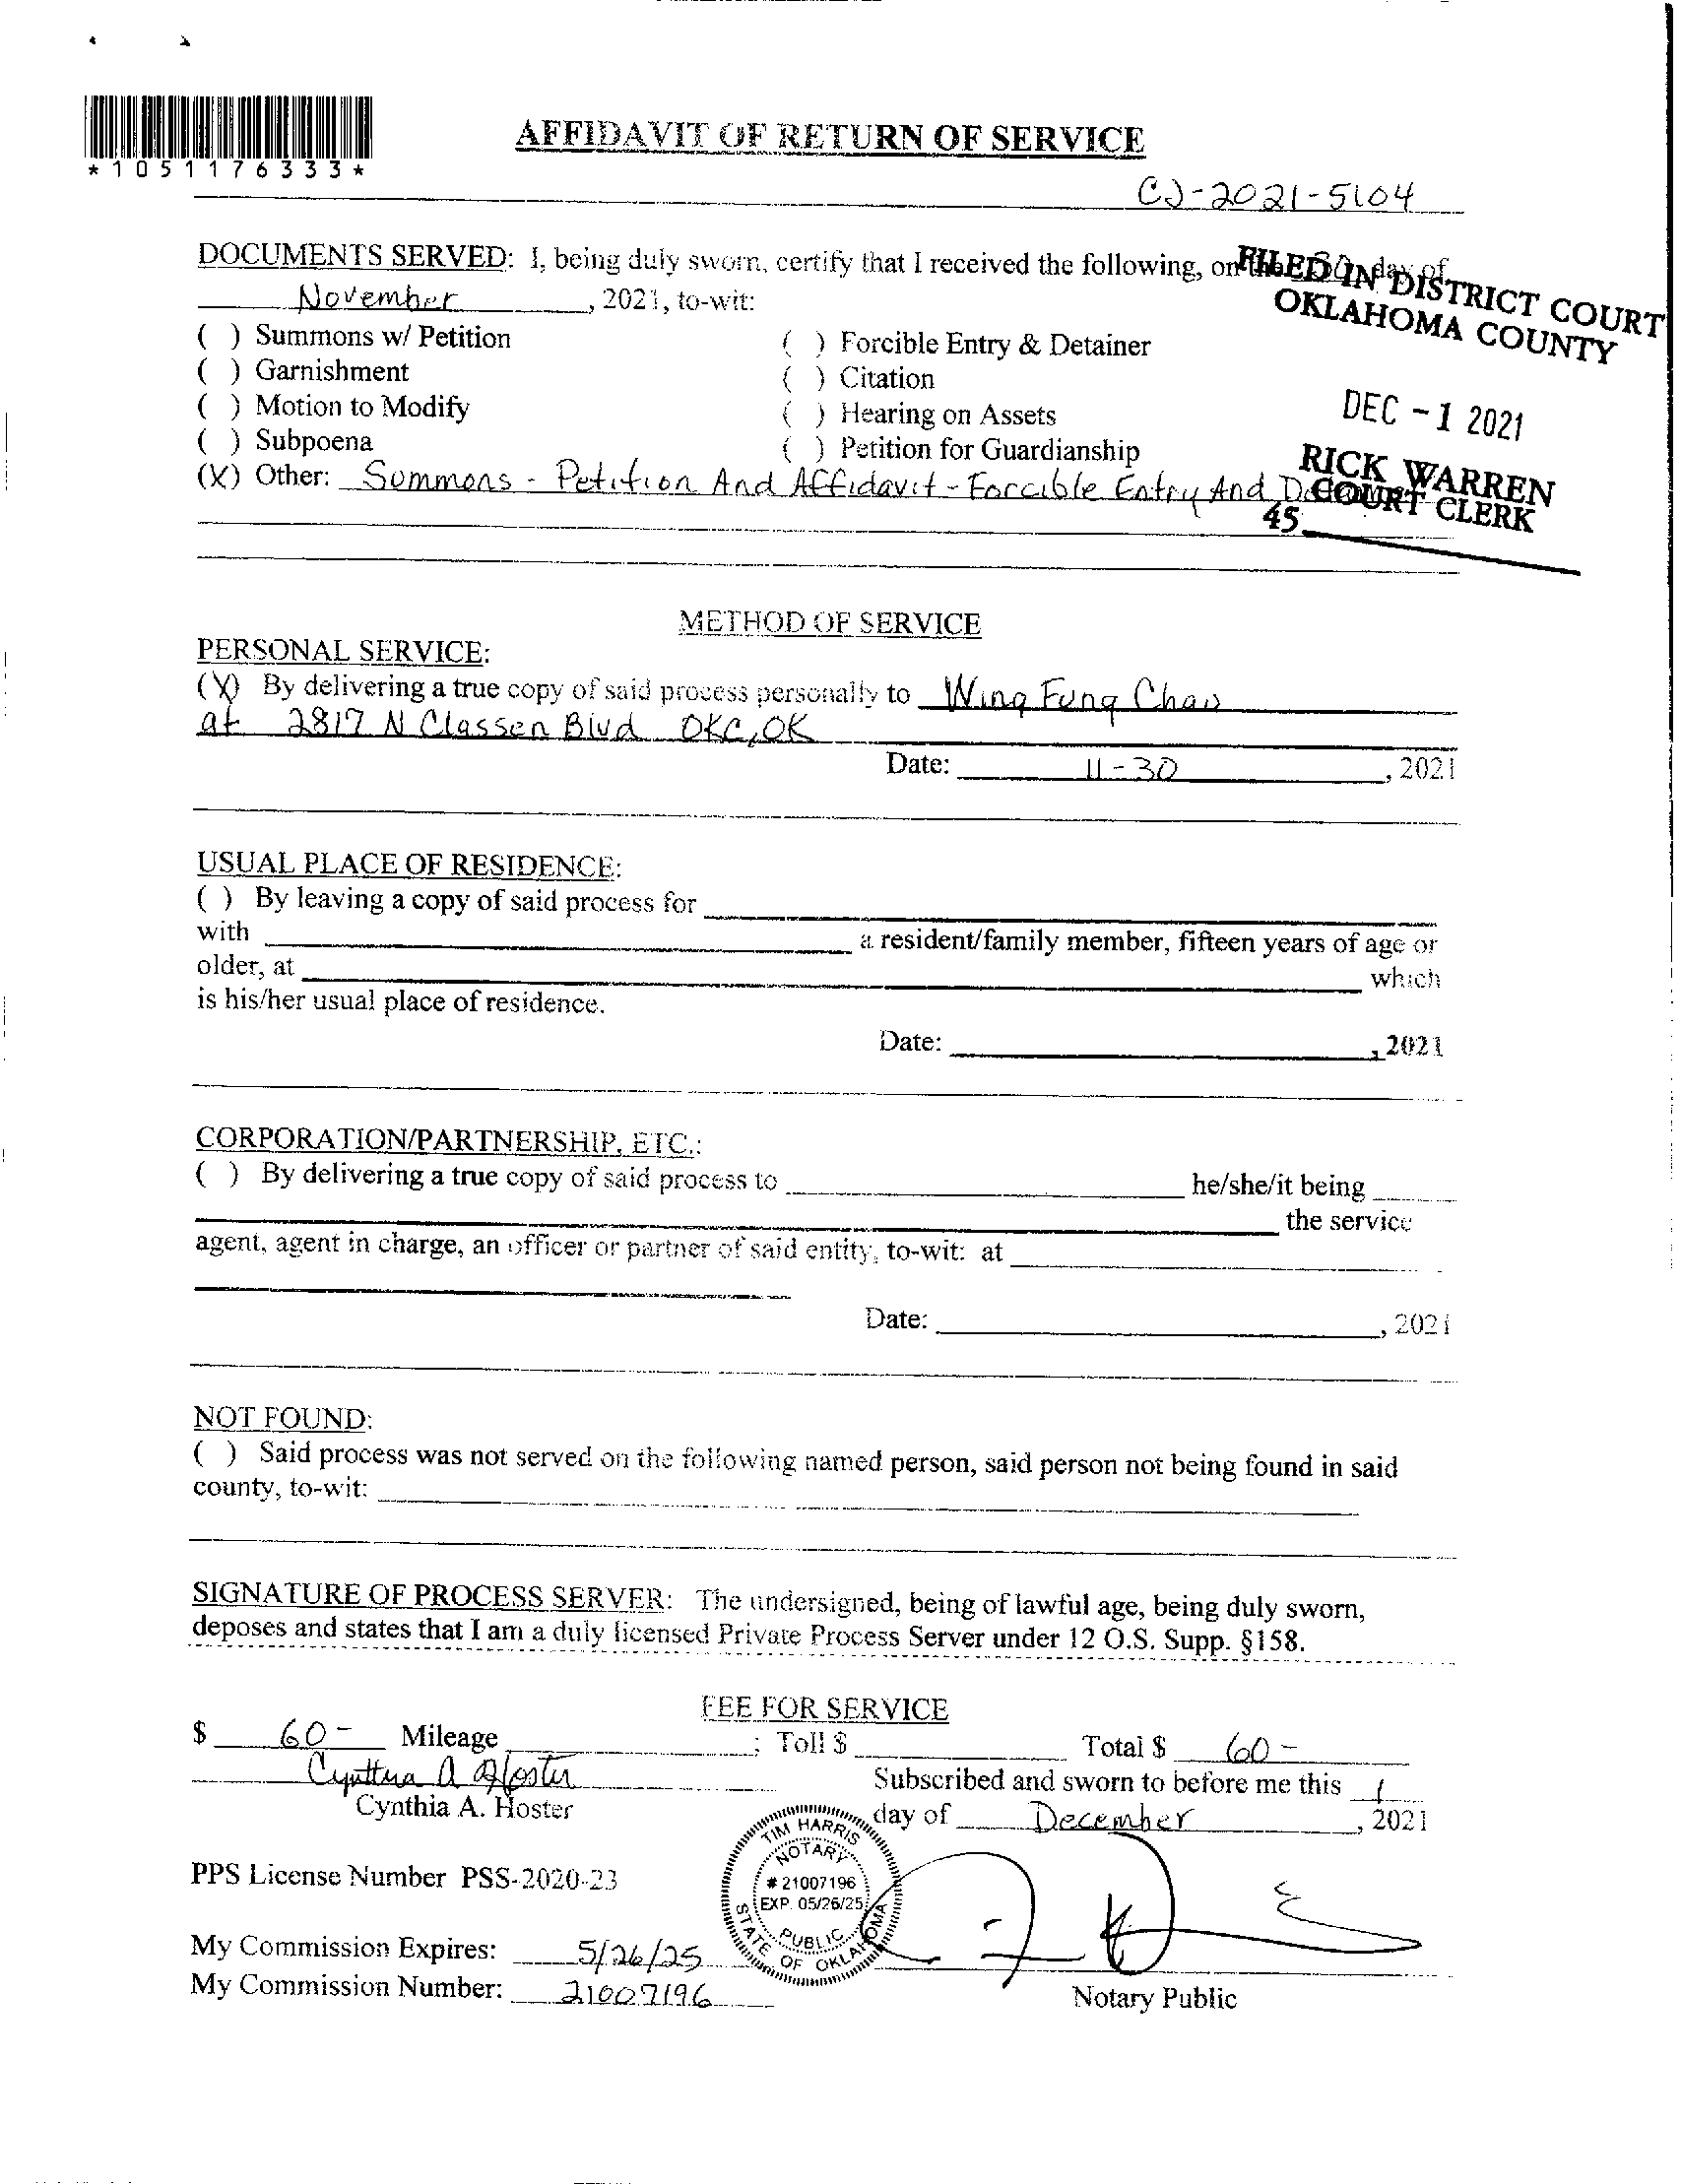 *1051176333*
AFFIDAVIT OF RETURN OF SERVICE
CJ-2021-5104
DOCUMENTS SERVED: I, being duly sworn, certify that I received the following, on the 30 day of
November, 2021, to-wit:
FILED IN DISTRICT COURT
OKLAHOMA COUNTY
DEC -1 2021
RICK WARREN
COURT CLERK
45
( ) Summons w/ Petition
( ) Forcible Entry & Detainer
( ) Garnishment
( ) Citation
( ) Motion to Modify
( ) Hearing on Assets
( ) Subpoena
( ) Petition for Guardianship
(X) Other: Summons - Petition And Affidavit - Forcible Entry And
METHOD OF SERVICE
PERSONAL SERVICE:
(X) By delivering a true copy of said process personally to Wing Fung Chau
at 2817 N Classen Blvd OKC, OK
Date: 11-30, 2021
USUAL PLACE OF RESIDENCE:
( ) By leaving a copy of said process for
with a resident/family member, fifteen years of age or
older, at which
is his/her usual place of residence.
Date: , 2021
CORPORATION/PARTNERSHIP, ETC.:
( ) By delivering a true copy of said process to he/she/it being
the service
agent, agent in charge, an officer or partner of said entity, to-wit: at
Date: , 2021
NOT FOUND:
( ) Said process was not served on the following named person, said person not being found in said
county, to-wit:
SIGNATURE OF PROCESS SERVER: The undersigned, being of lawful age, being duly sworn,
deposes and states that I am a duly licensed Private Process Server under 12 O.S. Supp. §158.
FEE FOR SERVICE
$ 60- Mileage ; Toll $ Total $ 60-
Cynthia A Hoster
Subscribed and sworn to before me this 1
Cynthia A. Hoster
day of December, 2021
TIM HARRIS
NOTARY
# 21007196
EXP. 05/26/25
PUBLIC
STATE OF OKLAHOMA
PPS License Number PSS-2020-23
My Commission Expires: 5/26/25
My Commission Number: 21007196
Notary Public